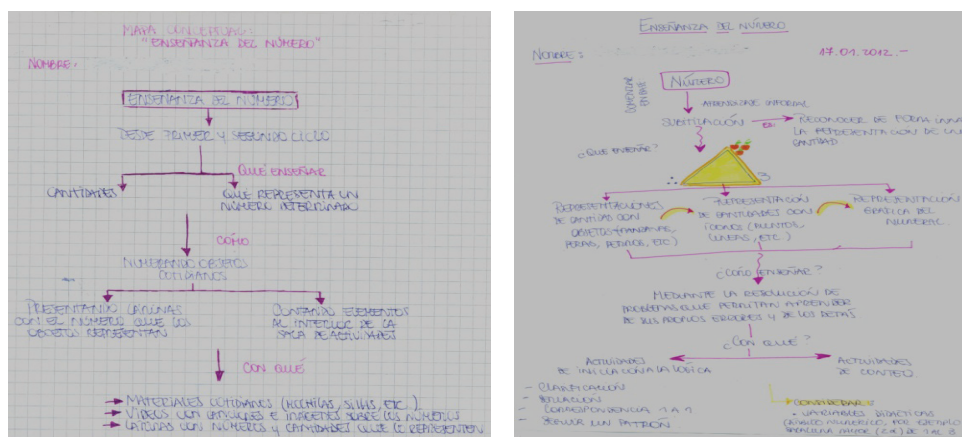 MAPA CONCEPTUAL:
"ENSEÑANZA DEL NÚMERO"
NOMBRE:
ENSEÑANZA DEL NÚMERO
DESDE PRIMER Y SEGUNDO CICLO
QUÉ ENSEÑAR
CANTIDADES
QUE REPRESENTA UN
NÚMERO DETERMINADO
CÓMO
NUMERANDO OBJETOS
COTIDIANOS
PRESENTANDO LÁMINAS
CON EL NÚMERO QUE LOS
OBJETOS REPRESENTAN
CONTANDO ELEMENTOS
AL INTERIOR DE LA
SALA DE ACTIVIDADES
CON QUÉ
MATERIALES COTIDIANOS (MOCHILAS, SILLAS, ETC.)
VIDEOS CON CANCIONES E IMÁGENES SOBRE LOS NÚMEROS
LÁMINAS CON NÚMEROS Y CANTIDADES QUE LO REPRESENTEN
ENSEÑANZA DEL NÚMERO
NOMBRE:
17.01.2012.-
NÚMERO
COMENZAR
EN BASE
APRENDIZAJE INFORMAL
SUBITIZACIÓN
ES:
RECONOCER DE FORMA
LA REPRESENTACIÓN DE UNA
CANTIDAD
¿QUÉ ENSEÑAR?
3
REPRESENTACIONES
DE CANTIDAD CON
OBJETOS (MANZANAS,
PERAS, PEDROS, ETC)
REPRESENTACIÓN
DE CANTIDADES CON
ÍCONOS (PUNTOS,
LÍNEAS, ETC.)
REPRESENTACIÓN
GRÁFICA DEL
NUMERAL.
¿CÓMO ENSEÑAR?
MEDIANTE LA RESOLUCIÓN DE
PROBLEMAS QUE PERMITAN APRENDER
DE SUS PROPIOS ERRORES Y DE LOS DEMÁS
¿CON QUÉ?
ACTIVIDADES
DE INICIACIÓN A LA LÓGICA
ACTIVIDADES
DE CONTEO.
- CLASIFICACIÓN
- SERIACIÓN
- CORRESPONDENCIA 1 A 1
- SEGUIR UN PATRÓN
CONSIDERAR:
• VARIABLES DIDÁCTICAS
(RANGO NUMÉRICO, POR EJEMPLO
DE 1 AL 3